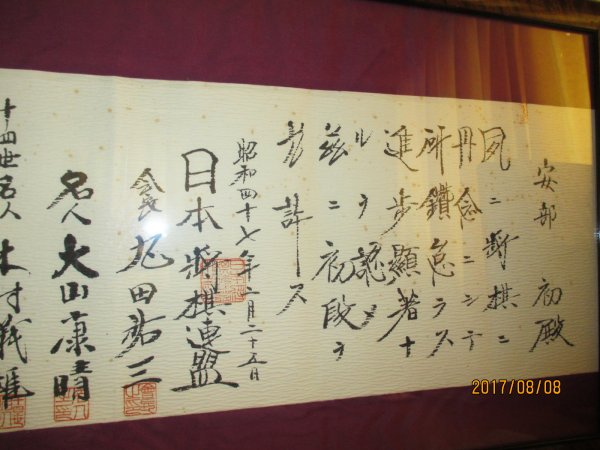 安部 初殿
夙ニ将棋ニ
丹念ニシテ
研鑽怠ラス
進歩顯著ナ
ルヲ認メ
茲ニ初段ヲ
允許ス
昭和四十七年二月二十五日
日本將棋連盟
会長 丸田祐三
名人 大山康晴
十四世名人 木村義雄
2017/08/08